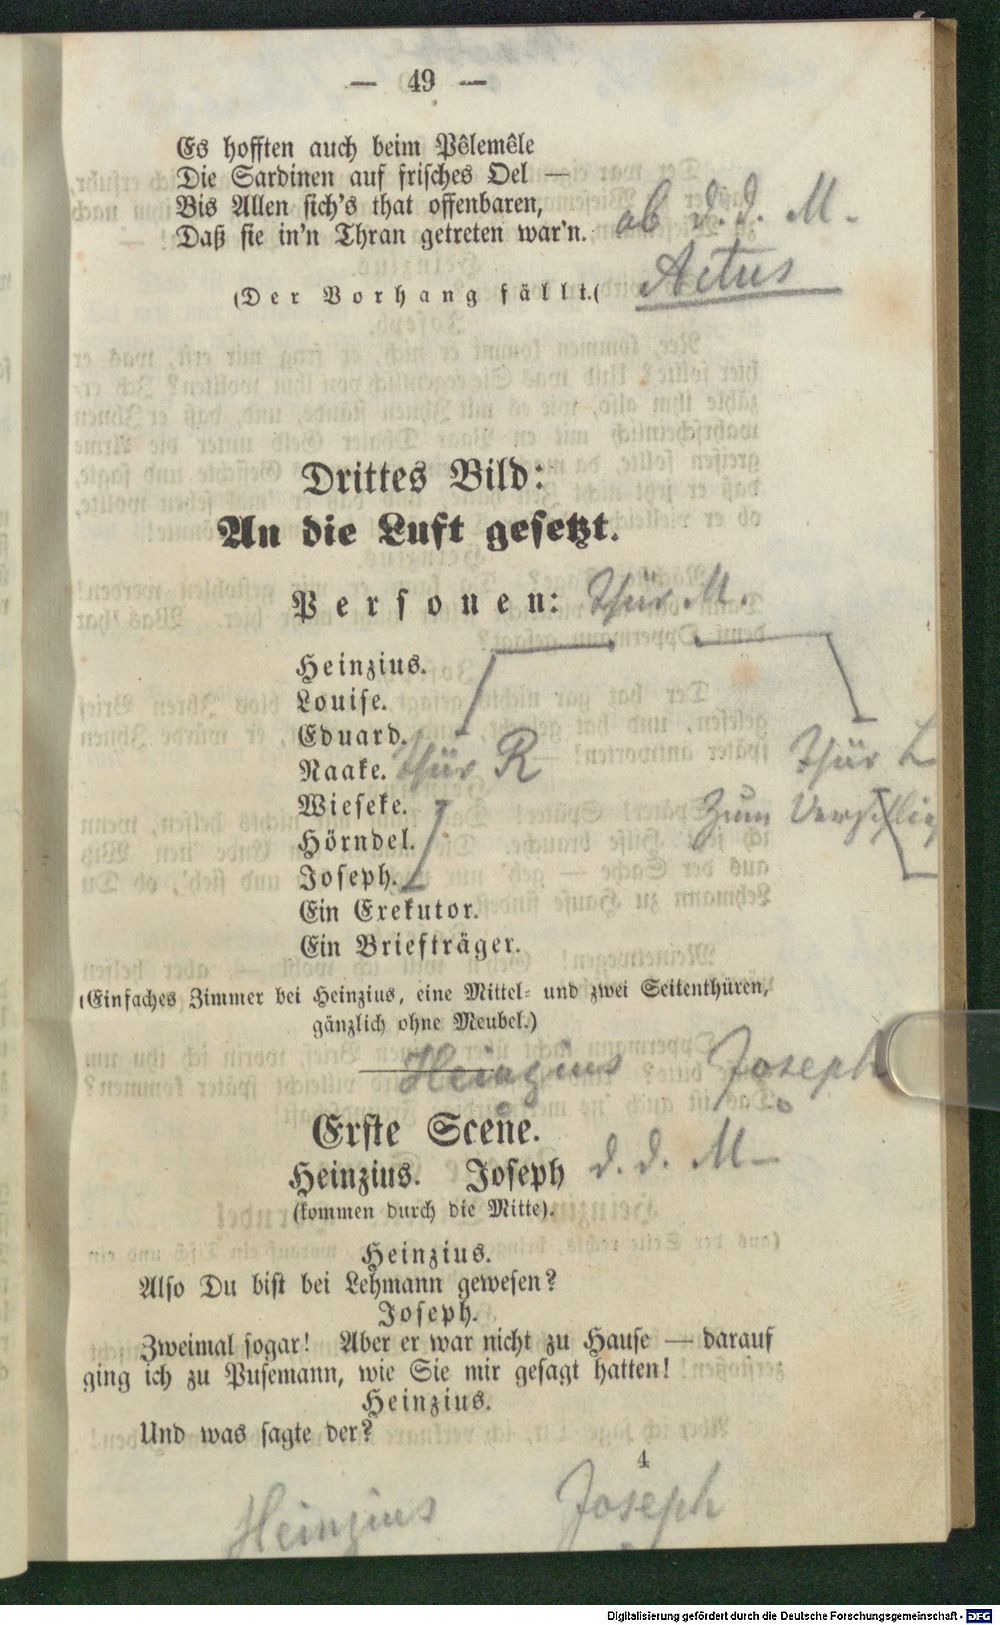 — 49 —
Es hofften auch beim Pêlemêle
Die Sardinen auf frisches Oel —
Bis Allen sich's that offenbaren,
Daß sie in'n Thran getreten war'n. ab d. d. M.
(Der Vorhang fällt.( Actus
Drittes Bild:
An die Luft gesetzt.
Personen: Thür M.
Heinzius.
Louise.
Eduard.
Naake. Thür R Thür L
Wieseke. Zum
Hörndel.
Joseph.
Ein Exekutor.
Ein Briefträger.
(Einfaches Zimmer bei Heinzius, eine Mittel- und zwei Seitenthüren,
gänzlich ohne Meubel.)
Heinzius Joseph
Erste Scene.
Heinzius. Joseph d. d. M
(kommen durch die Mitte).
Heinzius.
Also Du bist bei Lehmann gewesen?
Joseph.
Zweimal sogar! Aber er war nicht zu Hause — darauf
ging ich zu Pusemann, wie Sie mir gesagt hatten!
Heinzius.
Und was sagte der?
4
Heinzius Joseph
Digitalisierung gefördert durch die Deutsche Forschungsgemeinschaft - DFG